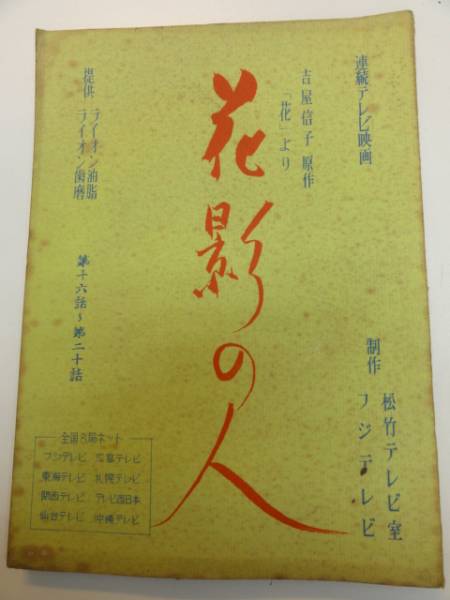 連続テレビ映画
吉屋信子 原作
「花」より
花影の人
制作 松竹テレビ室
フジテレビ
提供 ライオン油脂
ライオン歯磨
第十六話〜第二十話
全国8局ネット
フジテレビ 広島テレビ
東海テレビ 札幌テレビ
関西テレビ テレビ西日本
仙台テレビ 沖縄テレビ